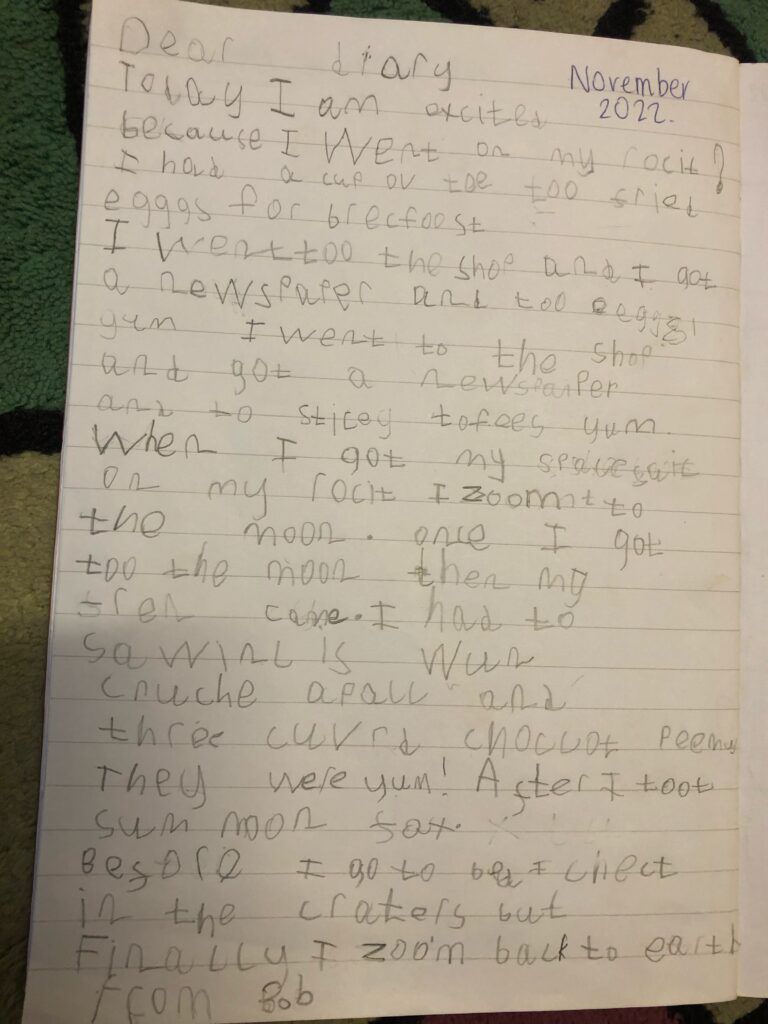 Dear diary
November
2022.
Today I am excited
because I went on my rocit?
I had a cup ov tee too fried
egggs for brecfoost
I went too the shop and I got
a newspaper and too eeggg!
yum I went to the shop
and got a newspaiper
and to sticey tofees yum.
When I got my spacesuit
on my rocit I zoomt to
the moon. once I got
too the moon then my
fren came. I had to
sawinl is wun
cruche apall and
three cuvrd choccot peenu
They were yum! After I toot
sum moon fax.
Before I go to bed I chect
in the craters but
Finally I zoom back to earth
From Bob